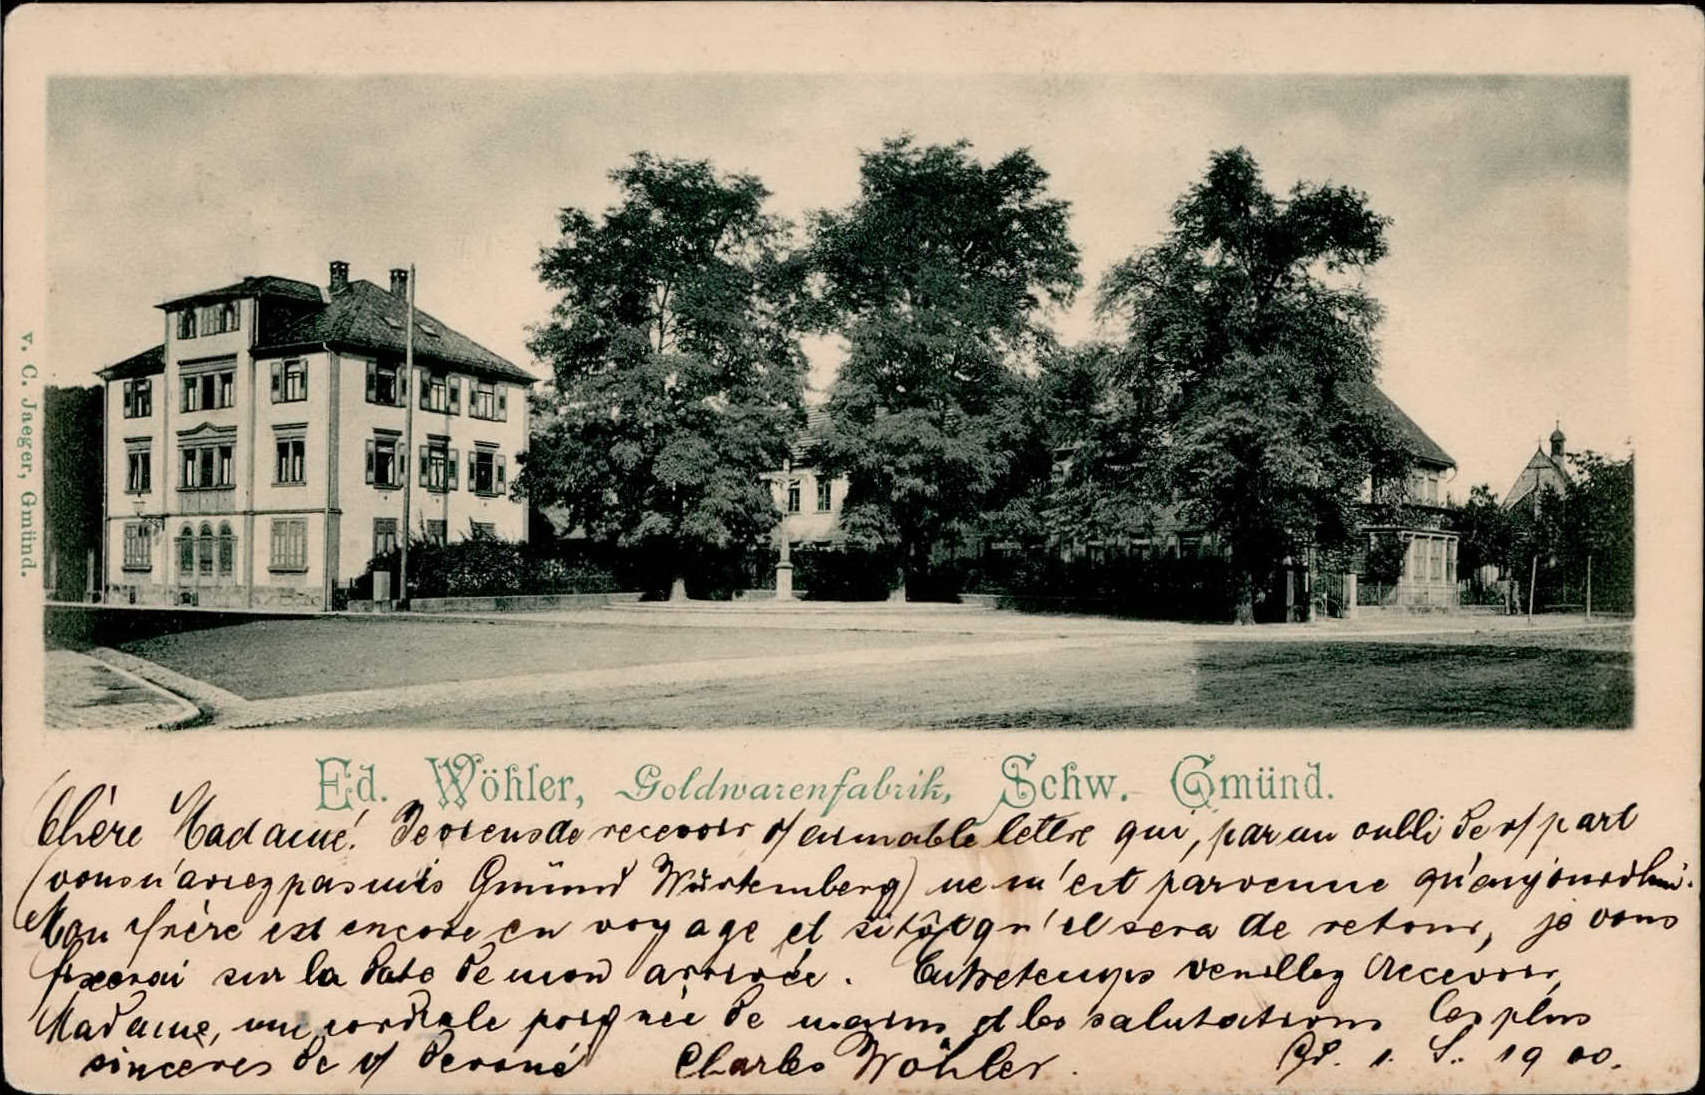 v. C. Jaeger, Gmünd.
Ed. Wöhler, Goldwarenfabrik, Schw. Gmünd.
Chère Madame! Je viens de recevoir v/ aimable lettre qui, par un oubli de v/ part
(vous n'aviez pas mis Gmünd Würtemberg) ne m'est parvenue qu'aujourdhui.
Mon frère est encore en voyage et sitôt qu'il sera de retour, je vous
fixerai sur la date de mon arrivée. Entretemps veuillez recevoir,
Madame, une cordiale poignée de mains et les salutations les plus
sincères de v/ devoué Charles Wöhler. Gd. 1. 1900.